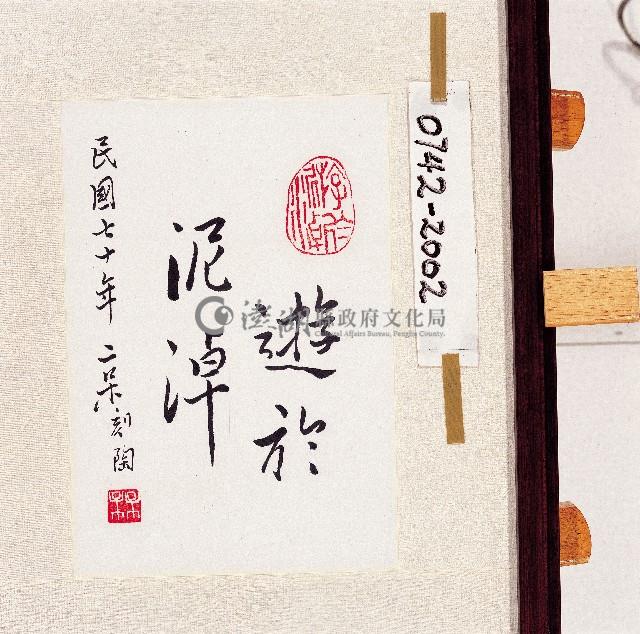 0742-2002
游於泥淖
遊於
泥淖
民國七十年 二呆刻陶
澎湖縣政府文化局
Cultural Affairs Bureau, Penghu County.